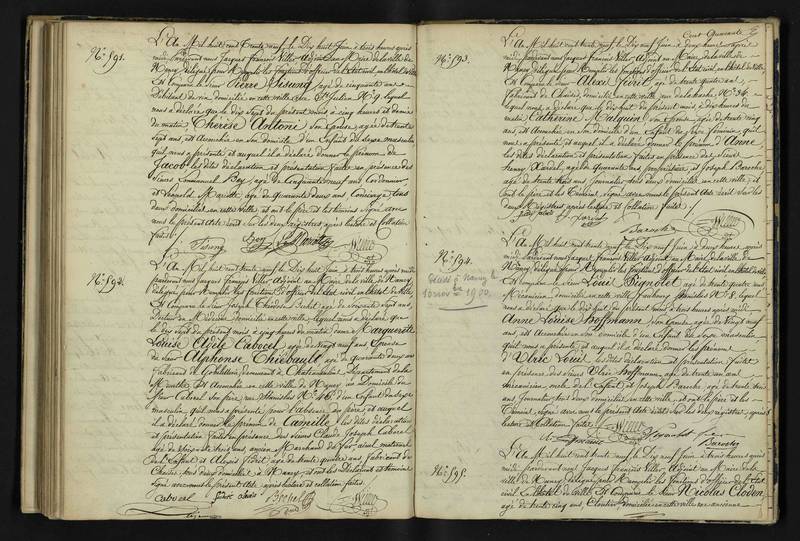 N.° 591.
L'An Mil huit cent trente neuf, le Dix huit Juin, à trois heures après
midi, pardevant nous Jacques François Viller, Adjoint au Maire de la ville de
Nancy, délégué pour remplir les fonctions d'officier de l'état civil, en l'hôtel de Ville,
Est comparu le Sieur Pierre Gésung, agé de cinquante ans,
Débitant de vin, domicilié en cette ville, rue St. Julien N.° 9, lequel
nous a déclaré que le dix sept du présent mois à cinq heures et demie
du matin, Thérèse Antoni, son épouse, agée de trente
sept ans, est accouchée en son domicile d'un Enfant du sexe masculin
qu'il nous a présenté et auquel il a déclaré donner le prénom de
Jacob, les dites déclaration et présentation faites en présence des
Sieurs Emmanuel Bay, agé de Cinquante neuf ans, Cordonnier
et Léopold Mariotte, agé de quarante deux ans, Concierge, tous
deux domiciliés en cette ville; et ont le père et les témoins signé avec
nous le présent acte écrit sur les deux registres après lecture et collation
faites.
N.° 592.
L'An Mil huit cent trente neuf, le Dix huit Juin, à trois heures après midi
pardevant nous Jacques François Viller, Adjoint au Maire de la ville de Nancy,
délégué pour remplir les fonctions d'officier de l'état civil, en l'hôtel de Ville,
Est comparu le Sieur Joseph Théodore agé de Soixante sept ans,
Docteur en Médecine, domicilié en cette ville, lequel nous a déclaré que
le dix sept du présent mois à cinq heures du matin, Dame Marguerite
Louise Adèle Cabocel, agée de Vingt neuf ans, Epouse
du Sieur Alphonse Thiébault, agé de quarante deux ans,
Fabricant de demeurant à Département de la
Meurthe, est accouchée en cette ville de Nancy, au Domicile du
Sieur Cabocel son père, rue Stanislas N.° 46, d'un Enfant du sexe
masculin, qu'il nous a présenté pour l'absence du père, et auquel
il a déclaré donner le prénom de Camille, les dites déclaration
et présentation faites en présence des Sieurs Claude Joseph Cabocel
agé de soixante trois ans, ancien Marchand de fer, aïeul maternel
de l'Enfant, et Alexis Février, agé de trente quatre ans, fabricant de
Chaises, tous deux domiciliés à Nancy; et ont le Déclarant et témoins
signé avec nous le présent acte, après lecture et collation faites.
Cabocel
Cent Quarante
N.° 593.
L'An Mil huit cent trente neuf, le Dix neuf Juin, à deux heures après
midi, pardevant nous Jacques François Viller, Adjoint au Maire de la ville de
Nancy, délégué pour remplir les fonctions d'officier de l'état civil, en l'hôtel de Ville,
Est comparu le Sieur Alexis Février, agé de trente quatre ans,
fabricant de Chaises, domicilié en cette ville, rue de la hache, N.° 34,
lequel nous a déclaré que le dix huit du présent mois, à dix heures du
matin, Catherine Malquin, son Epouse, agée de trente cinq
ans, est accouchée en son domicile d'un Enfant du sexe féminin, qu'il
nous a présenté, et auquel il a déclaré donner le prénom d'Anne,
les dites déclaration et présentation faites en présence des Sieurs
Henry agé de quarante ans, propriétaire, et Joseph Baroche,
agé de trente trois ans, Journalier, tous deux domiciliés en cette ville; et
ont le père et les témoins signé avec nous le présent acte écrit sur les
deux registres, après lecture et collation faites.
Baroche
N.° 594.
Décédé à Nancy le
10 nov. 1900.
L'An Mil huit cent trente neuf, le Dix neuf Juin, à deux heures après
midi, pardevant nous Jacques François Viller, Adjoint au Maire de la ville de
Nancy, délégué pour remplir les fonctions d'officier de l'état civil, en l'hôtel de Ville,
Est comparu le Sieur Louis Bignolet, agé de trente quatre ans,
Mécanicien, domicilié en cette ville, Faubourg Stanislas N.° 8, lequel
nous a déclaré que le dix huit du présent mois à trois heures après midi,
Anne Louise Hoffmann, son Epouse, agée de Vingt neuf
ans, est accouchée en son domicile d'un Enfant du sexe masculin,
qu'il nous a présenté, et auquel il a déclaré donner les prénoms
d'Ulric Louis, les dites déclaration et présentation faites
en présence des Sieurs Ulric Hoffmann, agé de trente un ans,
Mécanicien, oncle de l'Enfant, et Joseph Baroche, agé de trente trois
ans, Journalier, tous deux domiciliés en cette ville; et ont le père et les
témoins signé avec nous le présent acte écrit sur les deux registres, après
lecture et collation faites.
Baroche
N.° 595.
L'An Mil huit cent trente neuf, le Dix neuf Juin, à trois heures après
midi, pardevant nous Jacques François Viller, Adjoint au Maire de la
ville de Nancy, délégué pour remplir les fonctions d'officier de l'état
civil, en l'hôtel de Ville, Est comparu le Sieur Nicolas Clodon,
agé de trente cinq ans, Cloutier, domicilié en cette ville,